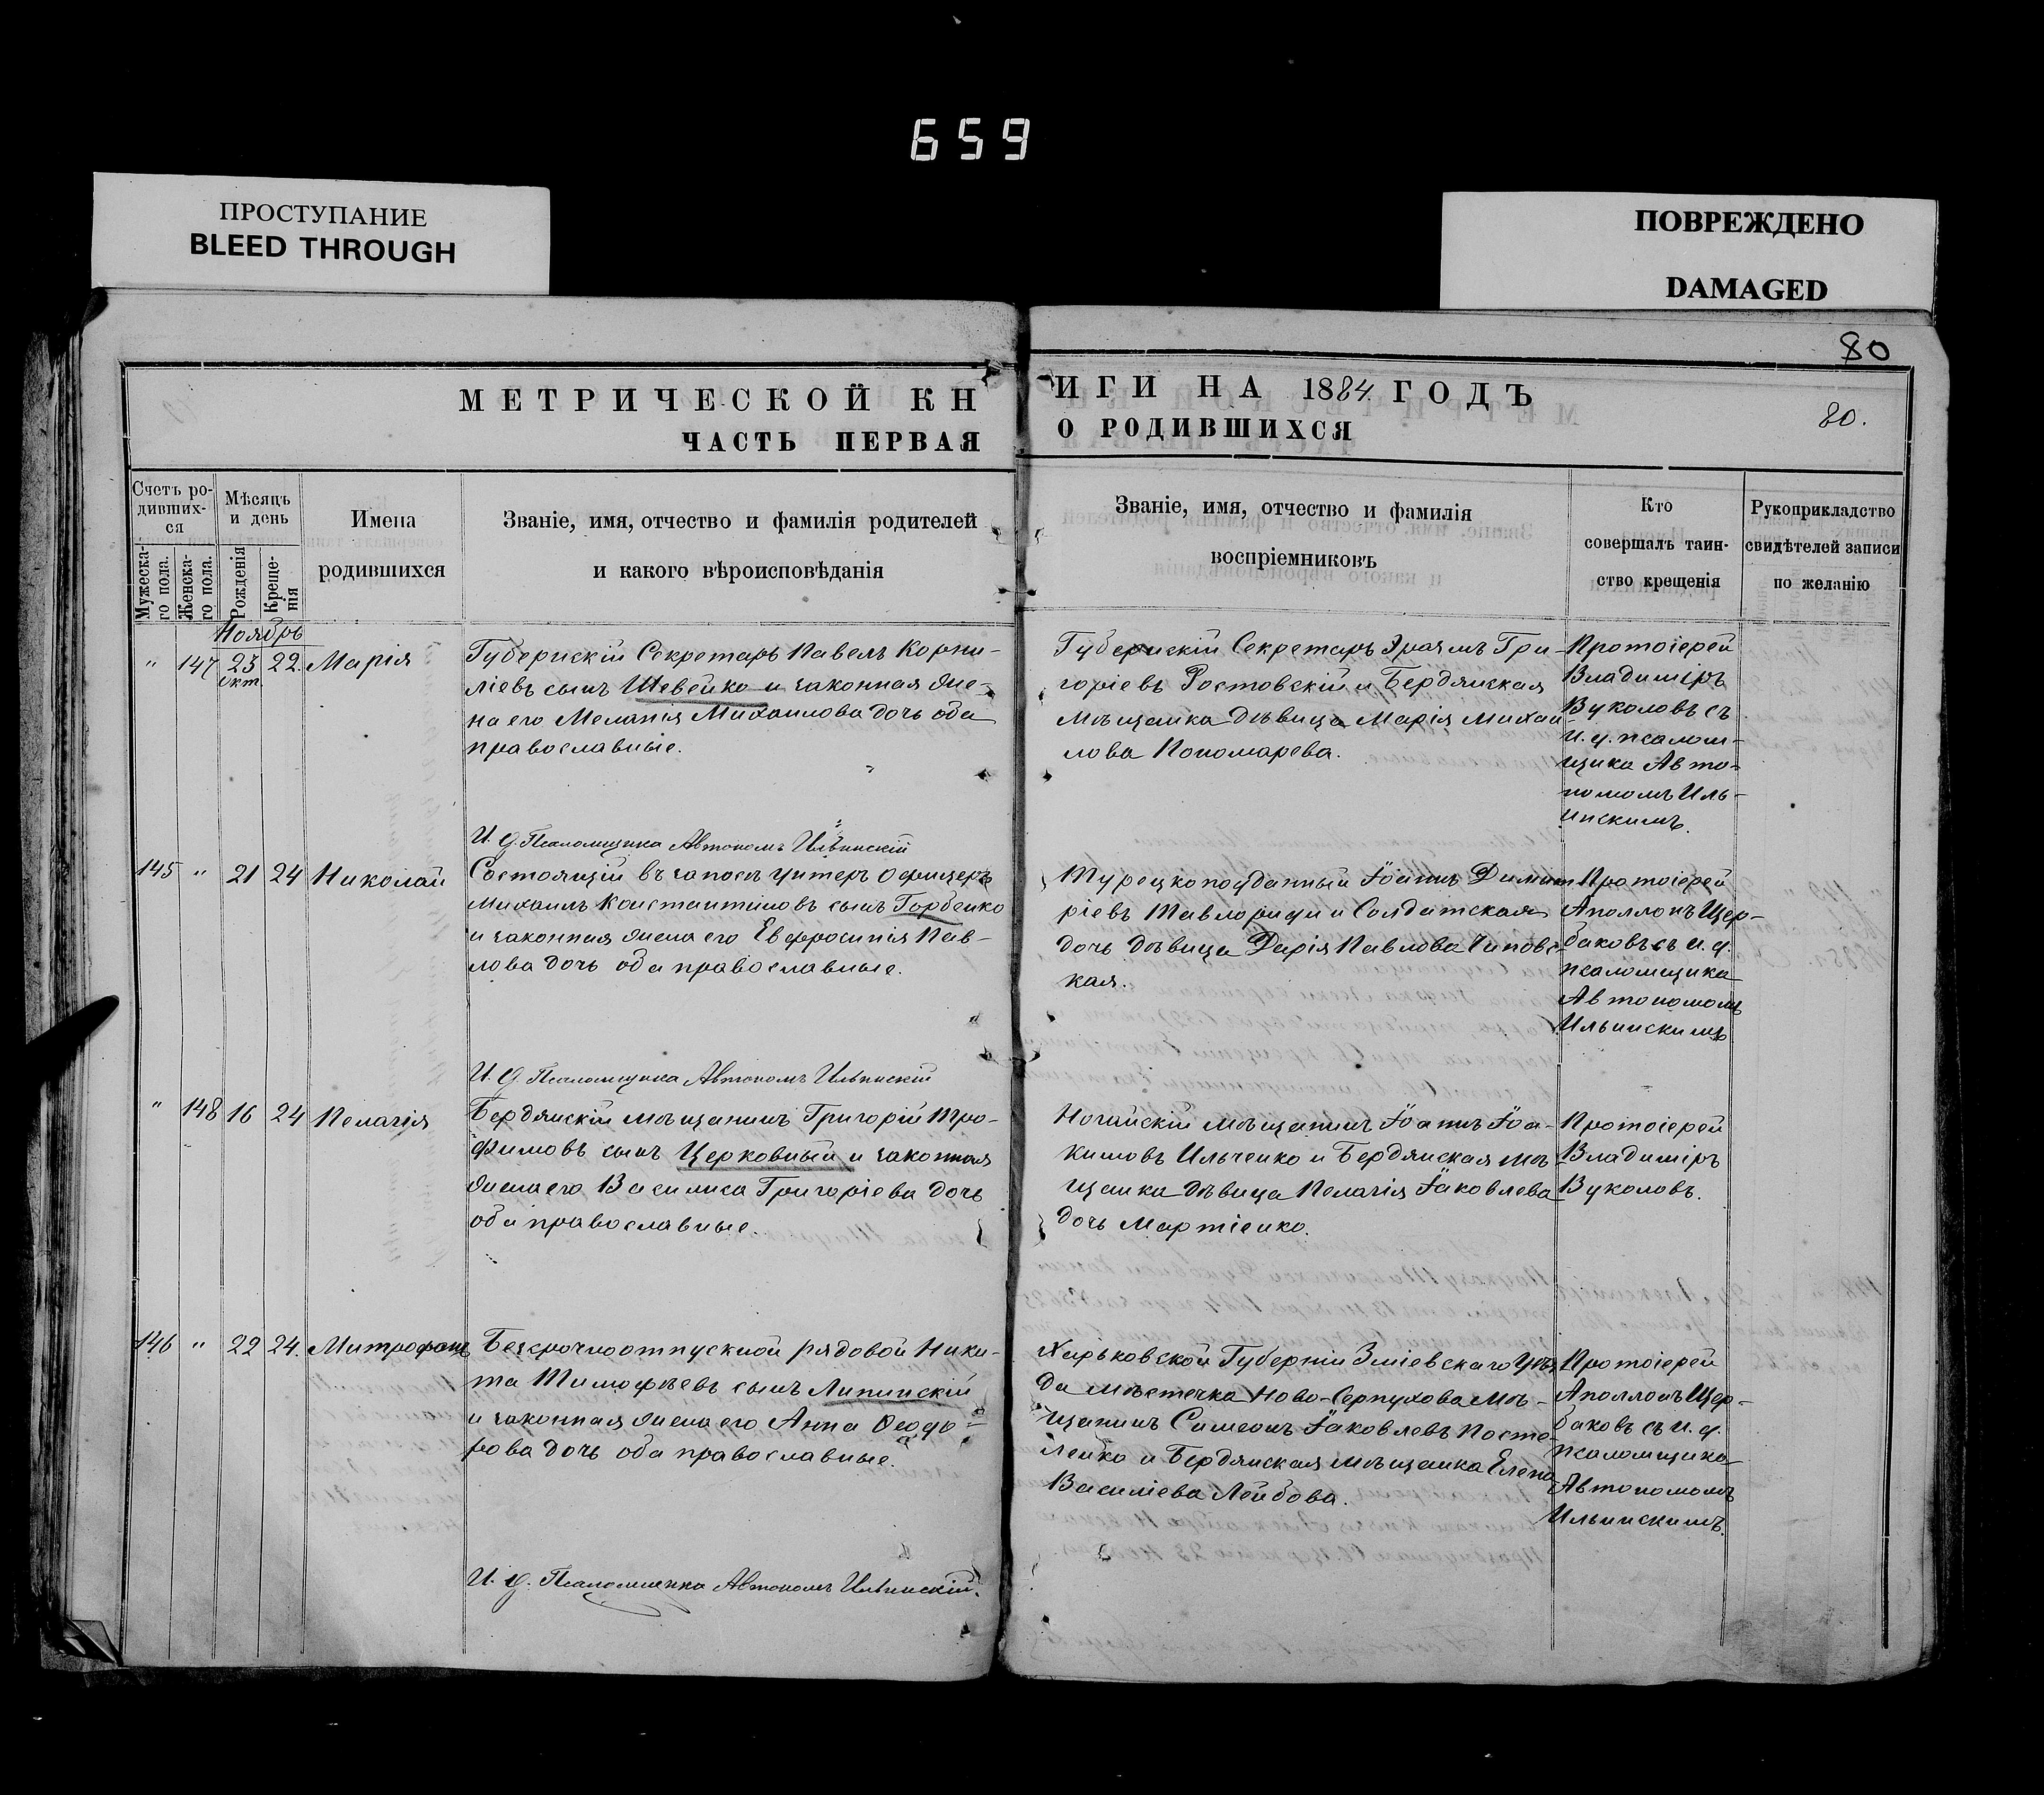 659
ПРОСТУПАНИЕ
BLEED THROUGH
ПОВРЕЖДЕНО
DAMAGED
80
МЕТРИЧЕСКОЙ КН
ИГИ НА 1884 ГОДЪ
80.
ЧАСТЬ ПЕРВАЯ
О РОДИВШИХСЯ
Счетъ ро-
дивших-
ся
Мужеска-
го пола.
Женска-
го пола.
Мѣсяцъ
и день
Рожденія
Креще-
нія
Имена
родившихся
Званіе, имя, отчество и фамилія родителей
и какого вѣроисповѣданія
Званіе, имя, отчество и фамилія
воспріемниковъ
Кто
совершалъ таин-
ство крещенія
Рукоприкладство
свидѣтелей записи
по желанію
Ноябрь
" 147 23 22. Марія
окт.
Губернскій Секретарь Павелъ Корни-
ліевъ сынъ Шевейко и законная же-
на его Меланія Михаилова дочь оба
православные.
Губернскій Секретарь Гри-
горіевъ Ростовскій и Бердянская
Мѣщанка дѣвица Марія Михаи-
лова Пономарева.
Протоіерей
Владиміръ
Вуколовъ съ
и. д. псалом-
щика Авто-
номомъ Иль-
инскимъ.
И. д. Псаломщика Автономъ Ильинскій
145 " 21 24 Николай
Состоящій въ запасѣ унтеръ офицеръ
Михаилъ Константиновъ сынъ Горбенко
и законная жена его Евфросинія Пав-
лова дочь оба православные.
Турецкоподданный Іоаннъ Димит
ріевъ Павлориди и Солдатская
дочь дѣвица Дарія Павлова
кая.
Протоіерей
Аполлонъ Щер-
баковъ съ и. д.
псаломщика
Автономомъ
Ильинскимъ
И. д. Псаломщика Автономъ Ильинскій
" 148 16 24 Пелагія
Бердянскій мѣщанинъ Григорій Тро-
фимовъ сынъ Церковный и законная
жена его Василиса Григоріева дочь
оба православные.
Ногайскій мѣщанинъ Іоаннъ Іоа-
кимовъ Ильченко и Бердянская мѣ
щанка дѣвица Пелагія Іаковлева
дочь Мартіенко.
Протоіерей
Владиміръ
Вуколовъ.
146 " 22 24. Митрофанъ
Безсрочноотпускной рядовой Ники-
та Тимофѣевъ сынъ Липинскій
и законная жена его Анна Феодо-
рова дочь оба православные.
Харьковской Губерніи Зміевскаго Уѣз
да мѣстечка Ново-Серпухова Мѣ-
щанинъ Симеонъ Іаковлевъ Посте-
ленко и Бердянская мѣщанка Елена
Василіева Лейбова.
Протоіерей
Аполлонъ Щер-
баковъ съ и. д.
псаломщика
Автономомъ
Ильинскимъ.
И. д. Псаломщика Автономъ Ильинскій.